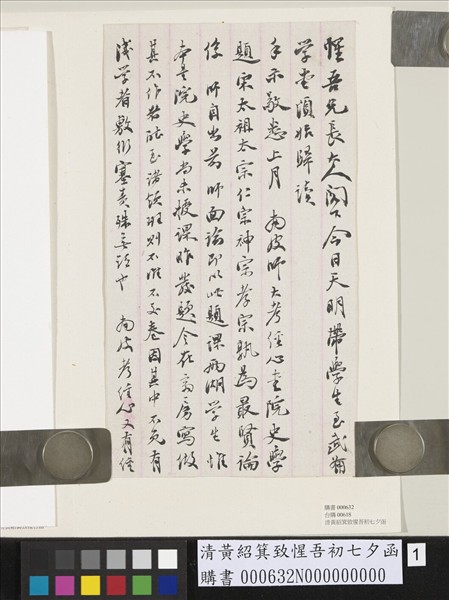 惺吾兄長大人閣下今日天明帶學生至武備
学堂演操歸讀
手示敬悉上月 南皮師大考經心書院史學
題宋太祖太宗仁宗神宗孝宗孰為最賢論
係 師自出前師面諭即以此題課兩湖学生惟
本書院史学尚未授課昨發題令在齋房寫做
其不作者
則不
不交卷因其中不免有
淺学者敷衍塞責殊無謂也 南皮考經心又有經
購書 000632
台購 00618
清黃紹箕致惺吾初七夕函
清黃紹箕致惺吾初七夕函
購書 000632N000000000
1